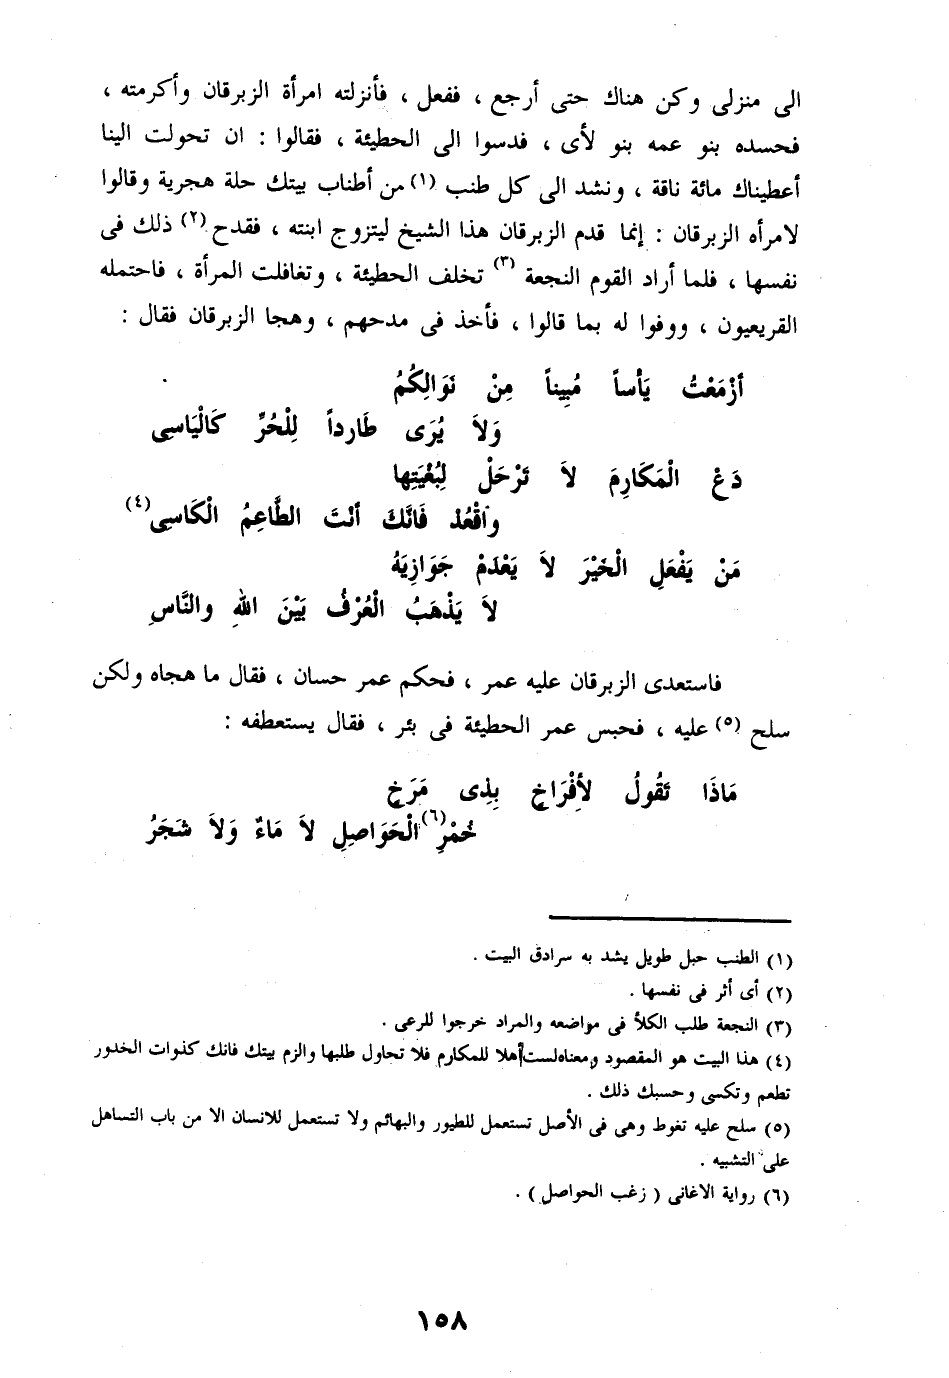 الى منزلى وكن هناك حتى أرجع ، ففعل ، فأنزلته امرأة الزبرقان وأكرمته ،
فحسده بنو عمه بنو لأى ، فدسوا الى الحطيئة ، فقالوا : ان تحولت الينا
أعطيناك مائة ناقة ، ونشد الى كل طنب (١) من أطناب بيتك حلة هجرية وقالوا
لامرأه الزبرقان : إنما قدم الزبرقان هذا الشيخ ليتزوج ابنته ، فقدح (٢) ذلك فى
نفسها ، فلما أراد القوم النجعة (٣) تخلف الحطيئة ، وتغافلت المرأة ، فاحتمله
القريعيون ، ووفوا له بما قالوا ، فأخذ فى مدحهم ، وهجا الزبرقان فقال :
أزْمَعْتُ يَأساً مُبِيناً مِنْ نَوَالِكُمُ
وَلاَ يُرَى طَارداً لِلْحُرِّ كَالْيَاسِى
دَعْ الْمَكَارِمَ لاَ تَرْحَلْ لِبُغْيَتِها
وَاقْعُدْ فَانَّكَ أنْتَ الطَّاعِمُ الْكَاسِى (٤)
مَنْ يَفْعَلِ الْخَيْرَ لاَ يَعْدَمْ جَوَازِيَهُ
لاَ يَذْهَبُ الْعُرْفُ بَيْنَ اللهِ والنَّاسِ
فاستعدى الزبرقان عليه عمر ، فحكم عمر حسان ، فقال ما هجاه ولكن
سلح (٥) عليه ، فحبس عمر الحطيئة فى بئر ، فقال يستعطفه :
مَاذَا تَقُولُ لأفْرَاخٍ بِذِى مَرَخٍ
حُمْرِ (٦) الْحَوَاصِلِ لاَ مَاءٌ وَلاَ شَجَرُ
(١) الطنب حبل طويل يشد به سرادق البيت .
(٢) أى أثر فى نفسها .
(٣) النجعة طلب الكلأ فى مواضعه والمراد خرجوا للرعى .
(٤) هذا البيت هو المقصود ومعناه لست أهلا للمكارم فلا تحاول طلبها والزم بيتك فانك كذوات الخدور
تطعم وتكسى وحسبك ذلك .
(٥) سلح عليه تغوط وهى فى الأصل تستعمل للطيور والبهائم ولا تستعمل للانسان الا من باب التساهل
على التشبيه .
(٦) رواية الاغانى ( زغب الحواصل ) .
١٥٨